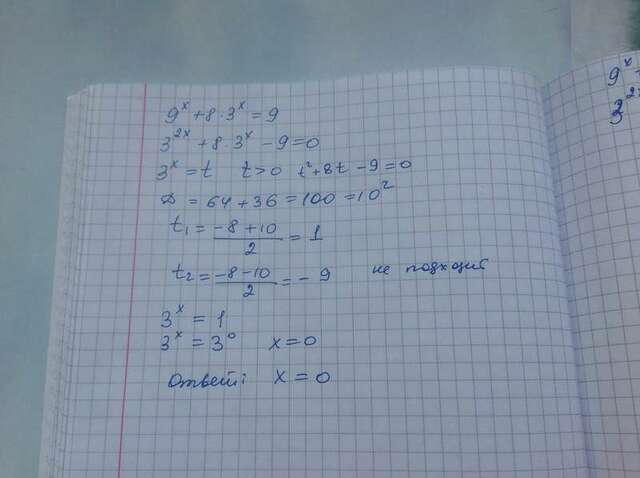 9ˣ + 8 · 3ˣ = 9
3²ˣ + 8 · 3ˣ - 9 = 0
3ˣ = t t > 0 t² + 8t - 9 = 0
D = 64 + 36 = 100 = 10²
t₁ = (-8 + 10)/2 = 1
t₂ = (-8 - 10)/2 = -9 не подходит
3ˣ = 1
3ˣ = 3⁰ x = 0
Ответ: x = 0
9ˣ
3²